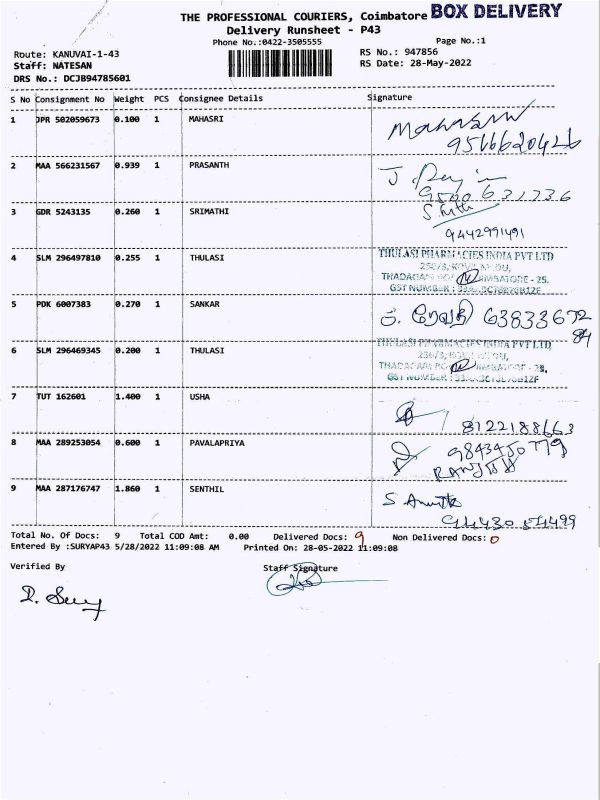 THE PROFESSIONAL COURIERS, Coimbatore BOX DELIVERY
Delivery Runsheet - P43
Phone No.:0422-3505555 Page No.:1
Route: KANUVAI-1-43 RS No.: 947856
Staff: NATESAN RS Date: 28-May-2022
DRS No.: DCJB94785601
S No Consignment No Weight PCS Consignee Details Signature
1 JPR 502059673 0.100 1 MAHASRI
9566620426
2 MAA 566231567 0.939 1 PRASANTH
9500631736
3 GDR 5243135 0.260 1 SRIMATHI
9442991491
4 SLM 296497810 0.255 1 THULASI THULASI PHARMACIES INDIA PVT LTD
THADAGAM COIMBATORE - 25.
GST NUMBER :
5 PDK 6007383 0.270 1 SANKAR 63833672
84
6 SLM 296469345 0.200 1 THULASI THULASI PHARMACIES INDIA PVT LTD
GST NUMBER :
7 TUT 162601 1.400 1 USHA
8122188663
8 MAA 289253054 0.600 1 PAVALAPRIYA 9843450779
RANJITH
9 MAA 287176747 1.860 1 SENTHIL
94430 54499
Total No. Of Docs: 9 Total COD Amt: 0.00 Delivered Docs: 9 Non Delivered Docs: 0
Entered By :SURYAP43 5/28/2022 11:09:08 AM Printed On: 28-05-2022 11:09:08
Verified By Staff Signature